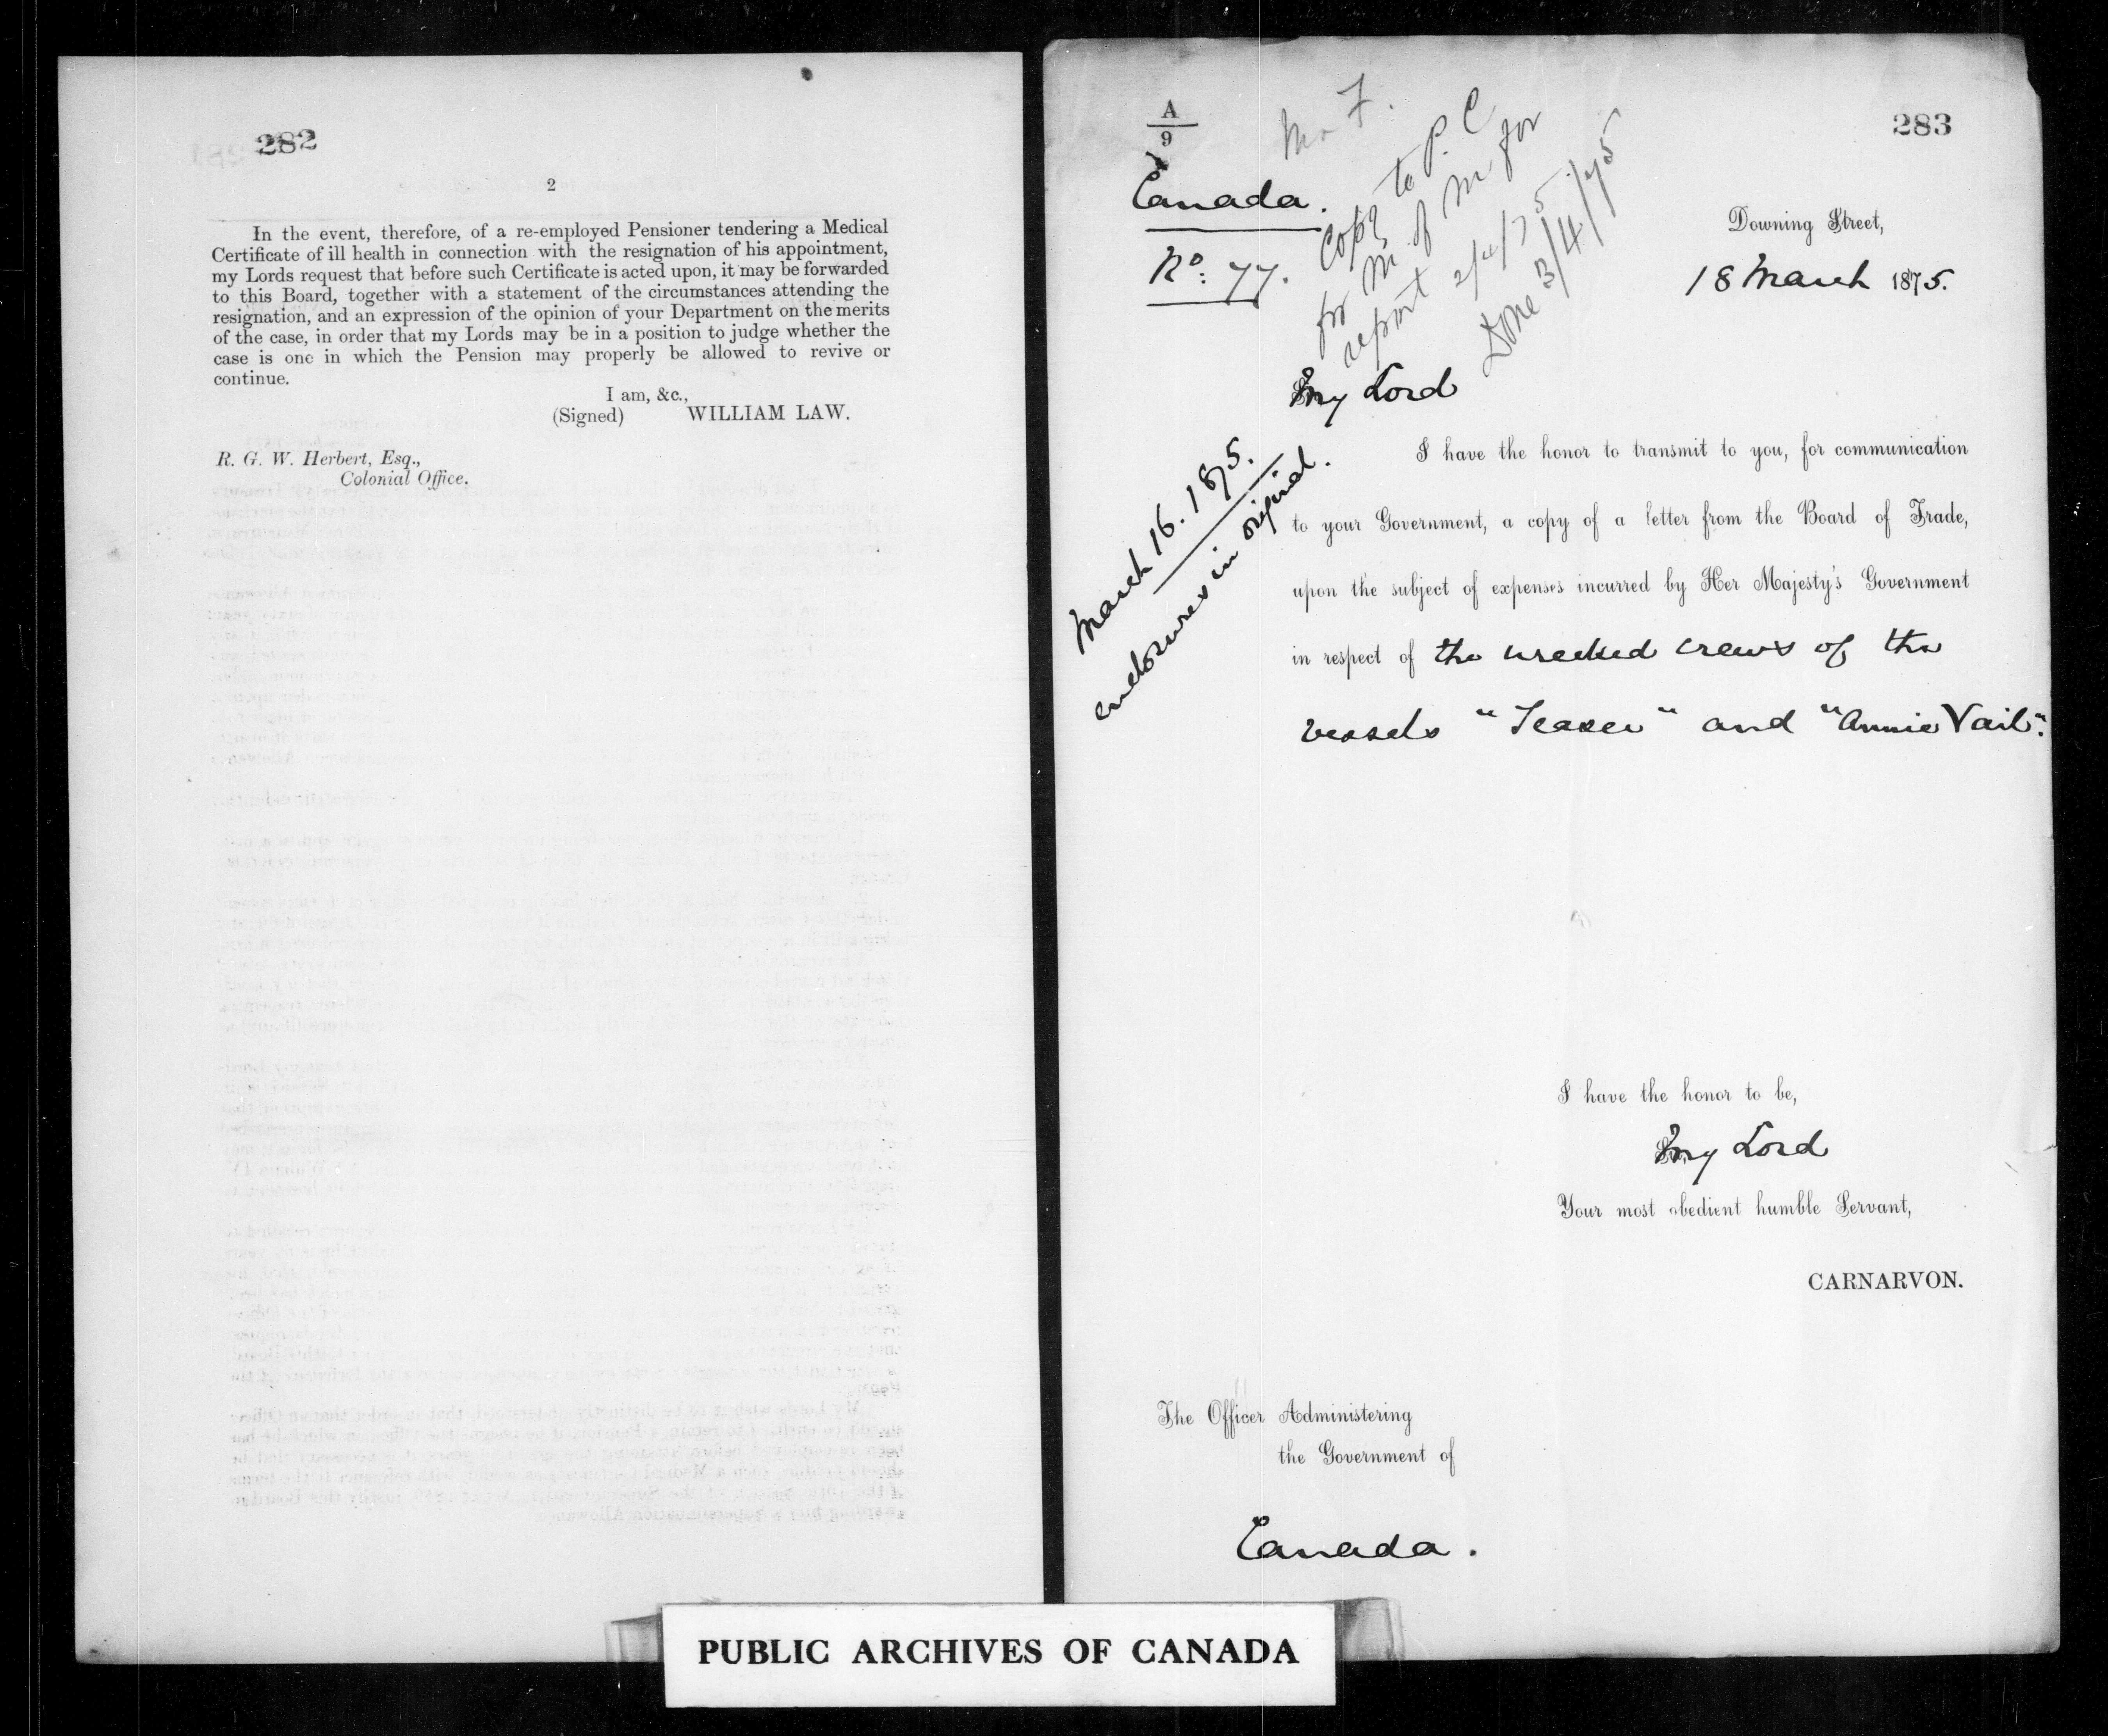 282
2
In the event, therefore, of a re-employed Pensioner tendering a Medical
Certificate of ill health in connection with the resignation of his appointment,
my Lords request that before such Certificate is acted upon, it may be forwarded
to this Board, together with a statement of the circumstances attending the
resignation, and an expression of the opinion of your Department on the merits
of the case, in order that my Lords may be in a position to judge whether the
case is one in which the Pension may properly be allowed to revive or
continue.
I am, &c.,
(Signed) WILLIAM LAW.
R. G. W. Herbert, Esq.,
Colonial Office.
283
A
9
Canada.
No: 77.
Mr F.
Copy to P. C
for M. of M for
report 2/4/75
Done 3/4/75
Downing Street,
18 March 1875.
My Lord
March 16. 1875.
enclosures in original.
I have the honor to transmit to you, for communication
to your Government, a copy of a letter from the Board of Trade,
upon the subject of expenses incurred by Her Majesty's Government
in respect of the wrecked crews of the
vessels "Teaser" and "Annie Vail".
I have the honor to be,
My Lord
Your most obedient humble Servant,
CARNARVON.
The Officer Administering
the Government of
Canada.
PUBLIC ARCHIVES OF CANADA